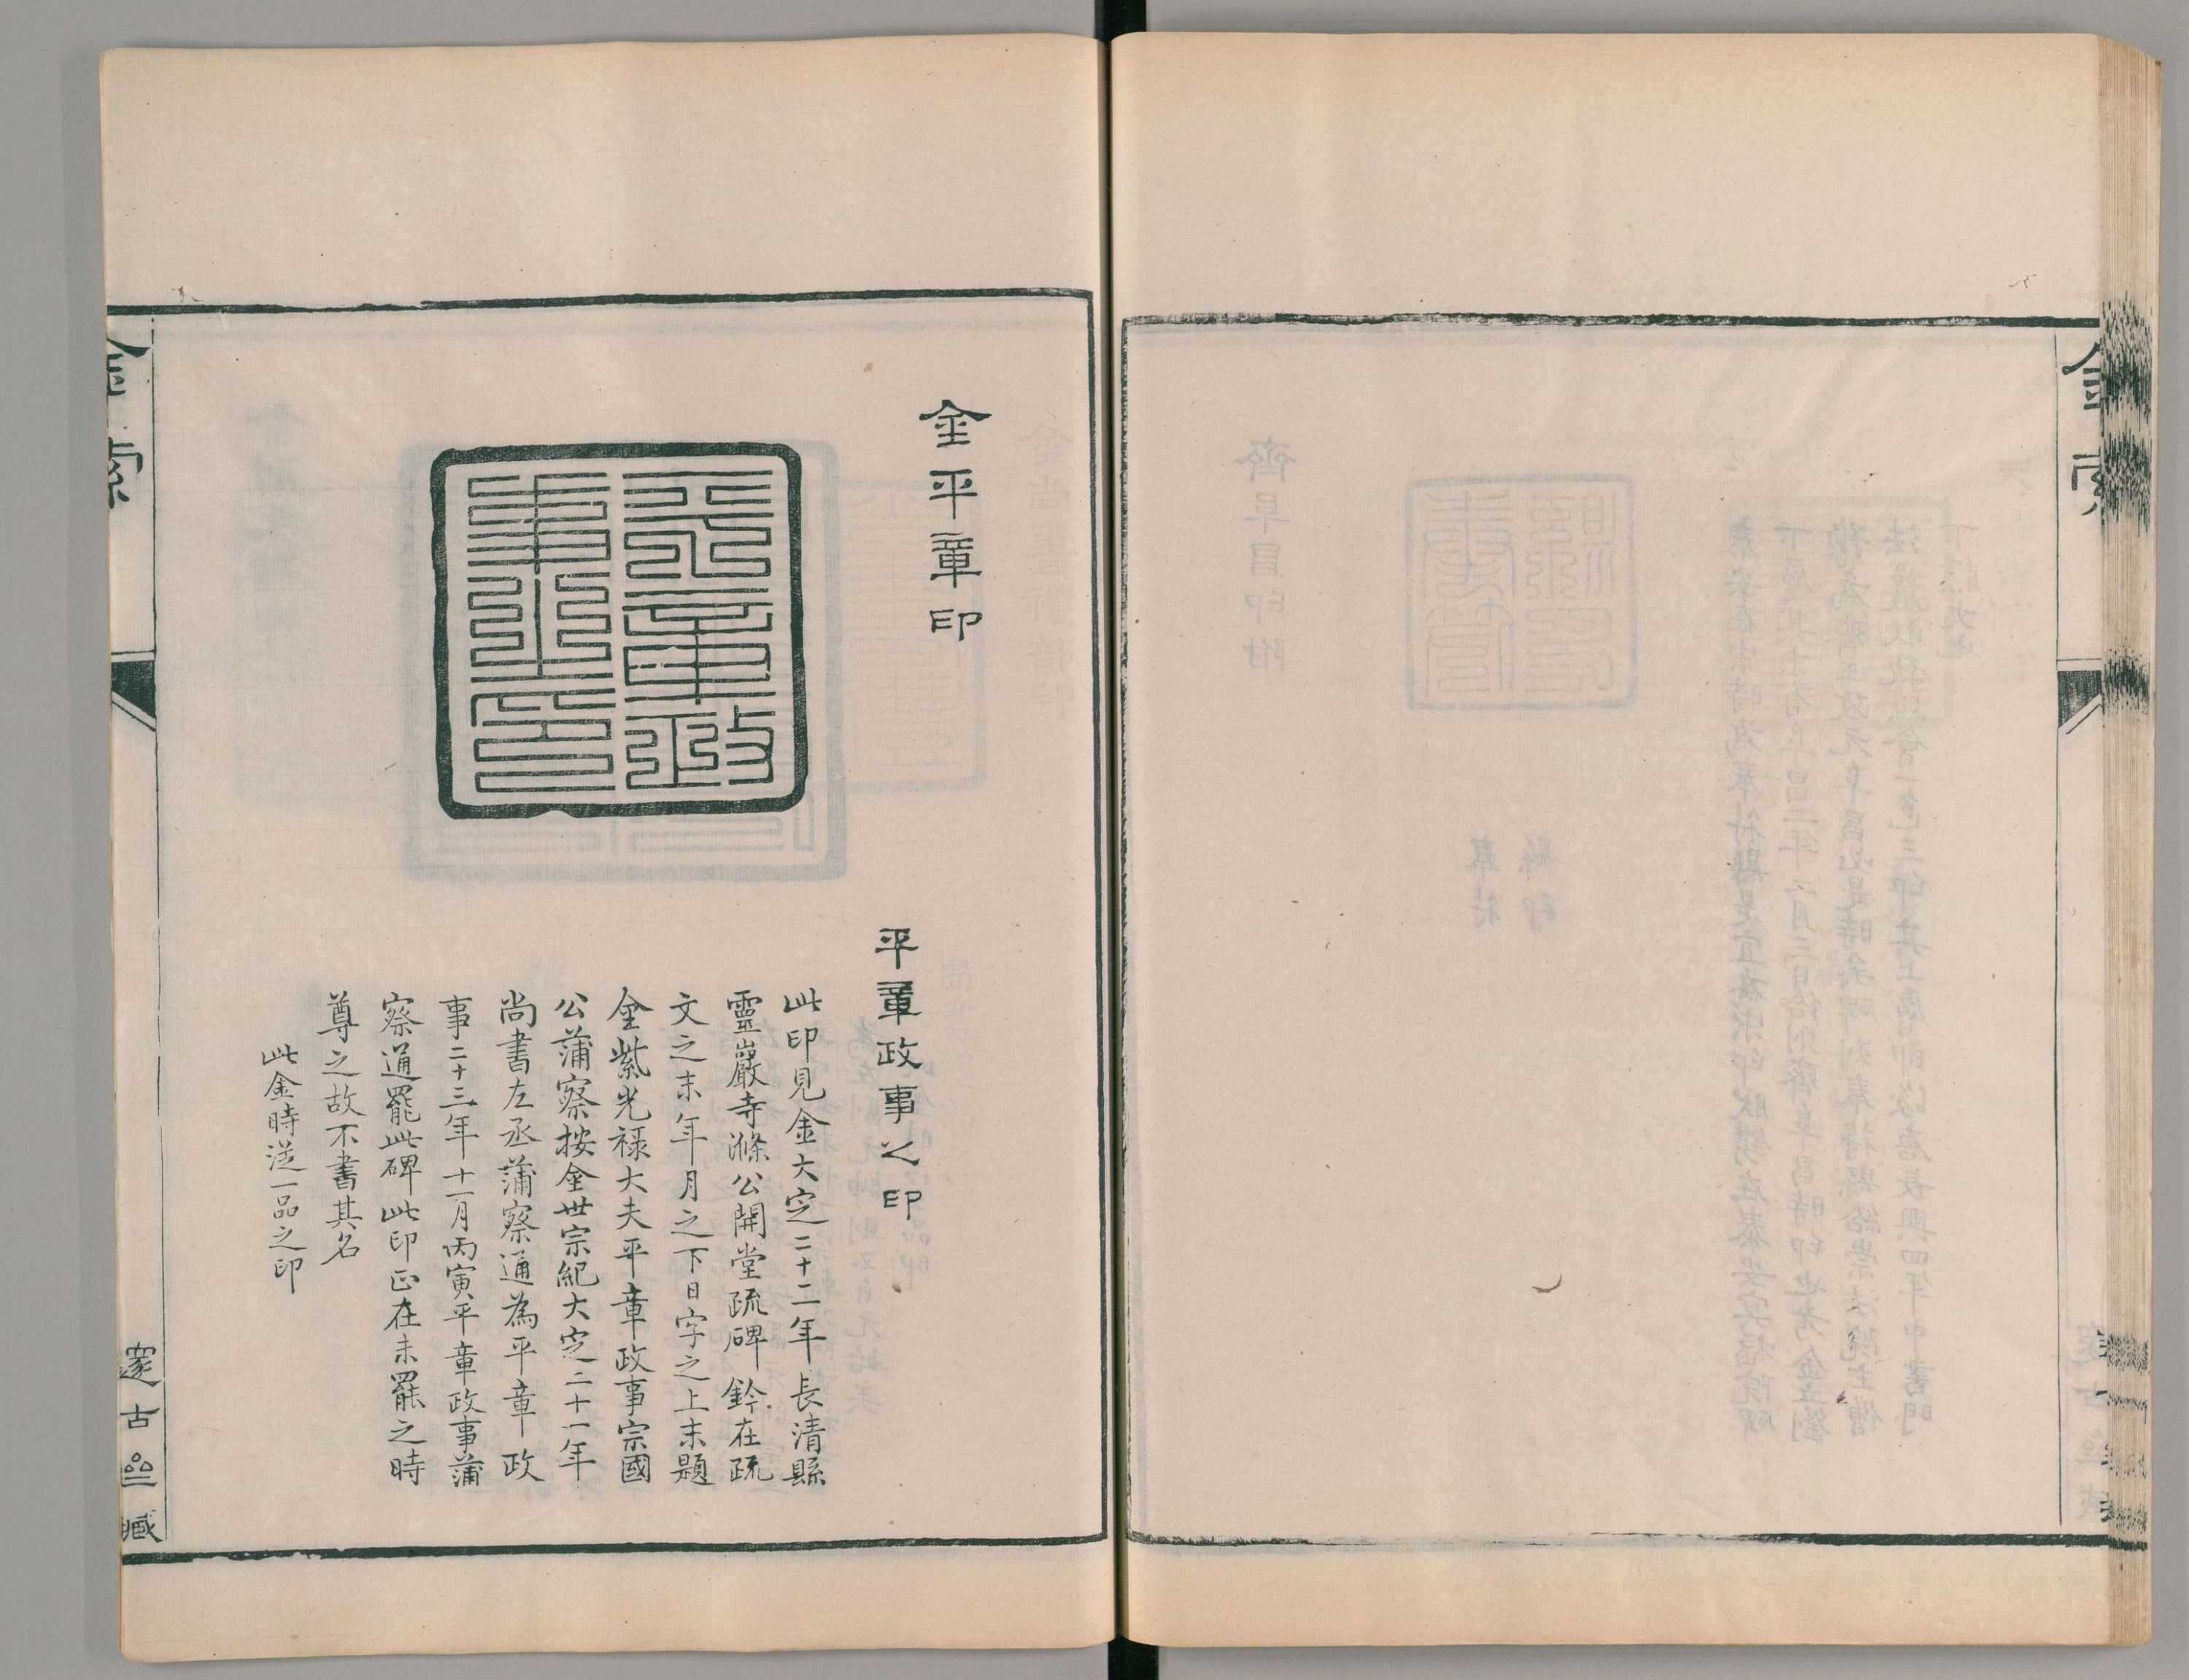 金平章印
平章政事之印
此印見金大定二十二年長清縣
靈巖寺滌公開堂疏碑鈐在疏
文之末年月之下日字之上末題
金紫光祿大夫平章政事宗國
公蒲察按金世宗紀大定二十一年
尚書左丞蒲察通為平章政
事二十三年十一月丙寅平章政事蒲
察通罷此碑此印正在未罷之時
尊之故不書其名
此金時從一品之印
金索
邃古㕡臧